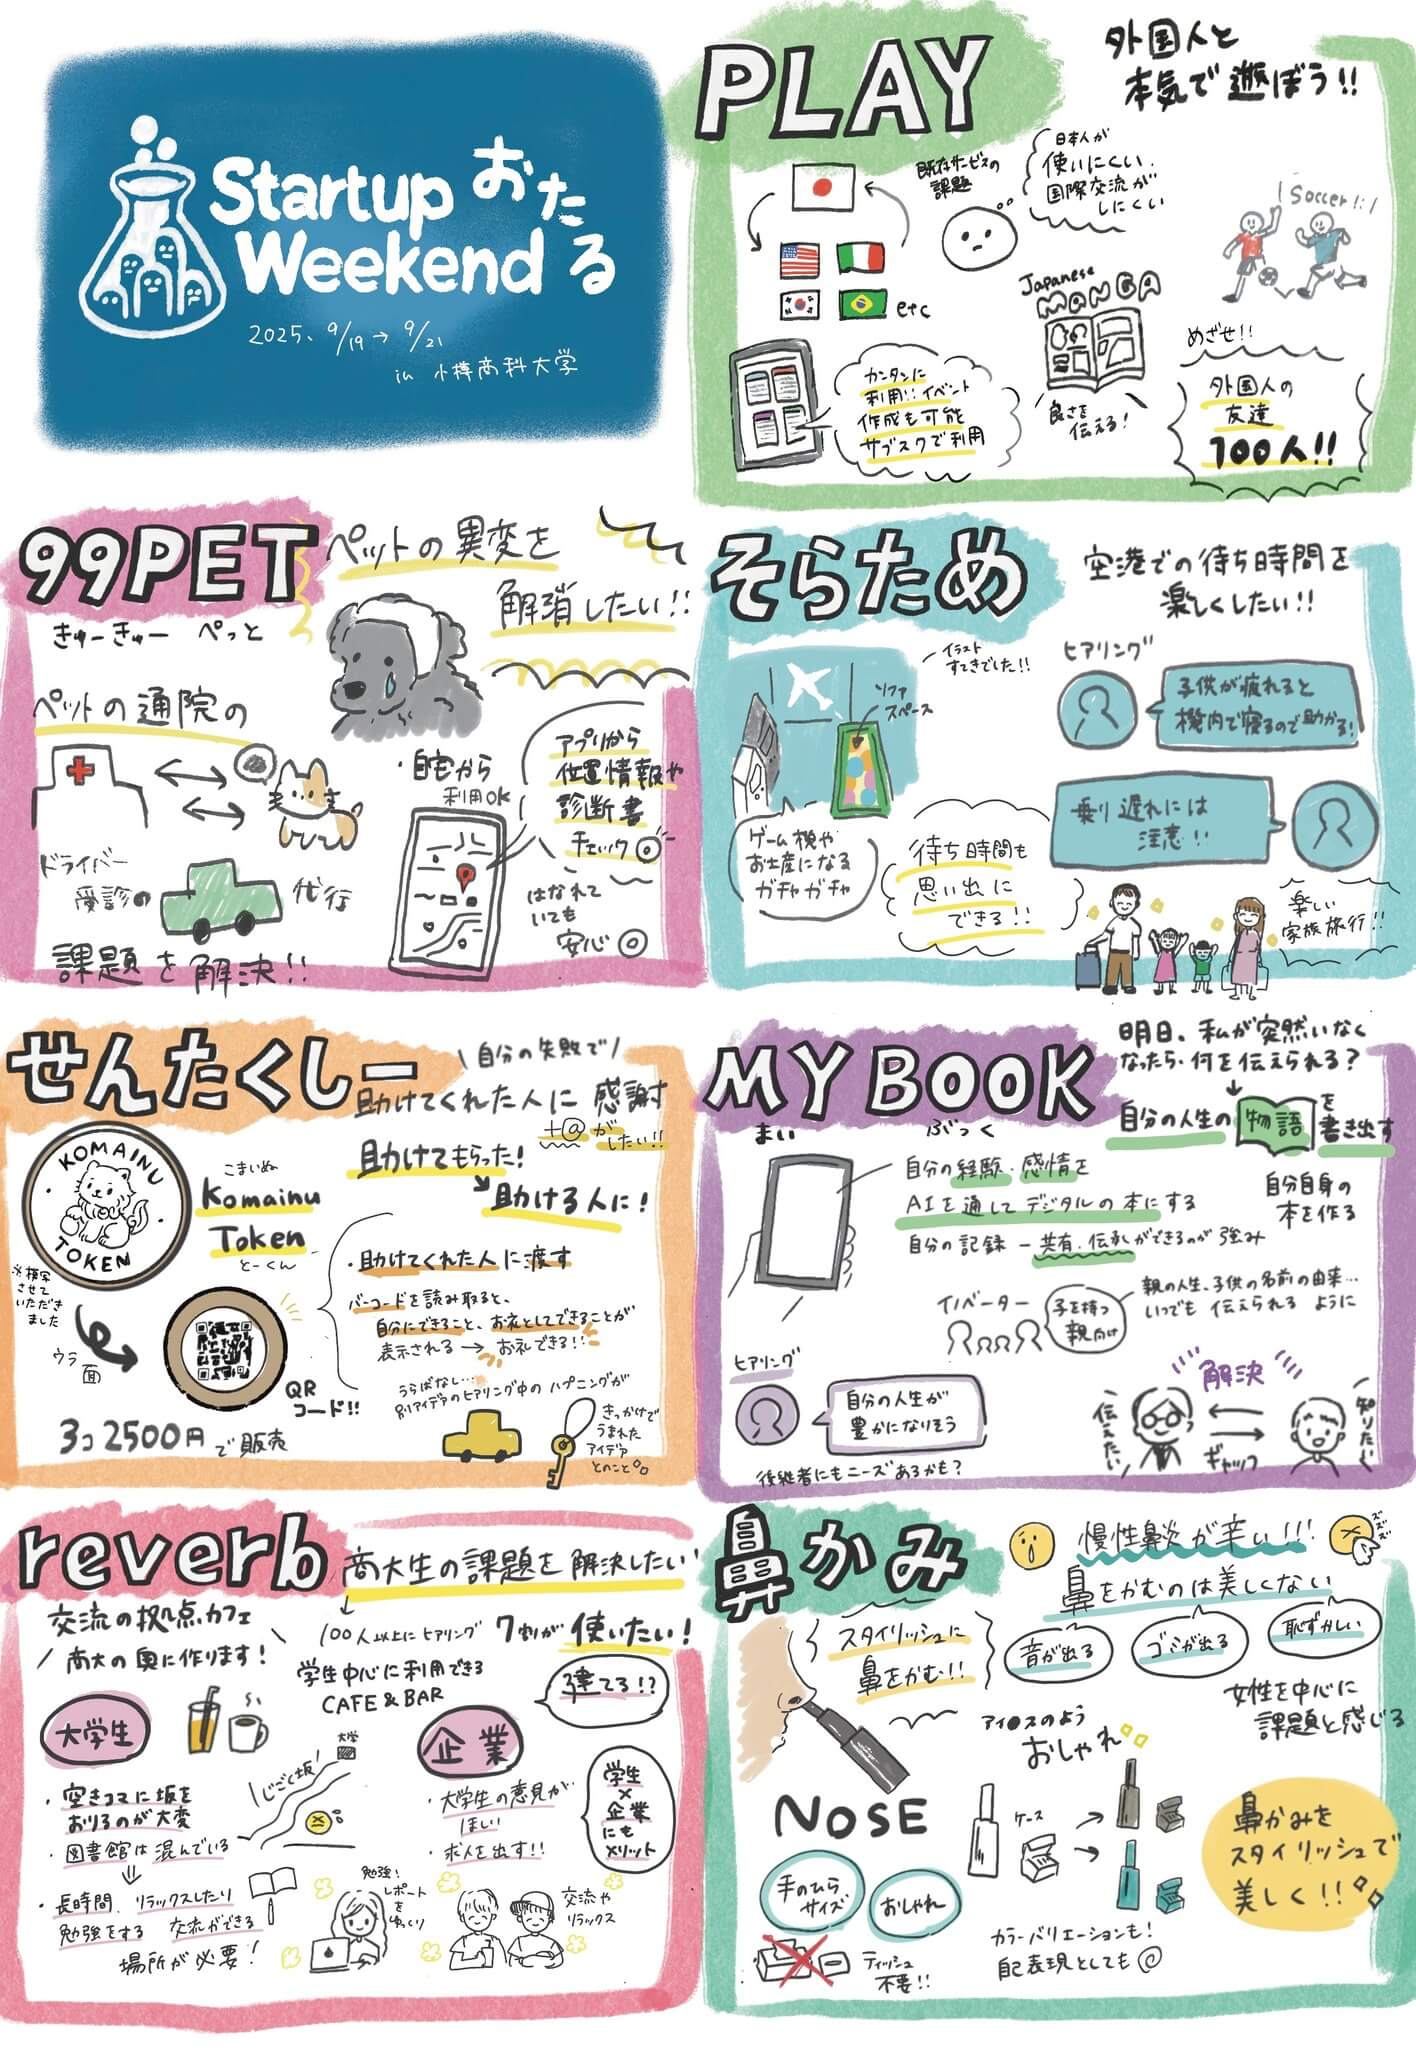 Startup
Weekend
おたる
2025、9/19→9/21
in 小樽商科大学
PLAY
外国人と
本気で遊ぼう!!
既存サービスの
課題
日本人が
使いにくい
国際交流が
しにくい
Soccer!!
etc
Japanese
MANGA
良さを
伝える!
カンタンに
利用!!イベント
作成も可能
サブスクで利用
めざせ!!
外国人の
友達
100人!!
99PET
きゅーきゅー ぺっと
ペットの異変を
解消したい!!
ペットの通院の
ドライバー
受診の
代行
課題を解決!!
・自宅から
利用OK
アプリから
位置情報や
診断書
チェック◎
はなれて
いても
安心◎
そらため
空港での待ち時間を
楽しくしたい!!
イラスト
すてきでした!!
ソファ
スペース
ゲーム機や
お土産になる
ガチャガチャ
待ち時間も
思い出に
できる!!
ヒアリング
子供が疲れると
機内で寝るので助かる!
乗り遅れには
注意!!
楽しい
家族旅行!!
せんたくしー
\自分の失敗で/
助けてくれた人に感謝
+@がしたい!!
助けてもらった!
助ける人に!
KOMAINU
TOKEN
※模写
させて
いただき
ました
こまいぬ
Komainu
Token
とーくん
ウラ面
QR
コード!!
3コ2500円で販売
・助けてくれた人に渡す
バーコードを読み取ると、
自分にできること、お礼としてできることが
表示される→お礼できる!!
うらばなし…
別アイデアのヒアリング中のハプニングが
きっかけで
うまれた
アイデア
とのこと
MY BOOK
まい ぶっく
明日、私が突然いなく
なったら・何を伝えられる?
自分の人生の
物語
を
書き出す
自分の経験・感情を
AIを通してデジタルの本にする
自分の記録ー共有・伝承ができるのが強み
自分自身の
本を作る
イノベーター
子を持つ
親向け
親の人生、子供の名前の由来…
いつでも伝えられるように
ヒアリング
自分の人生が
豊かになりそう
後継者にもニーズあるかも?
解決
伝えたい
ギャップ
知りたい
reverb
商大生の課題を解決したい
交流の拠点、カフェ
商大の奥に作ります!
100人以上にヒアリング
7割が使いたい!
学生中心に利用できる
CAFE&BAR
建てる!?
大学生
大学
じごく坂
企業
・空きコマに坂を
おりるのが大変
・図書館は混んでいる
・長時間、リラックスしたり
勉強をする 交流ができる
場所が必要!
・大学生の意見が
ほしい
・求人を出す!!
学生
×
企業
にも
メリット
勉強!
レポート
を
ゆっくり
交流や
リラックス
鼻かみ
慢性鼻炎が辛い!!!
ズズズ
鼻をかむのは美しくない
音が出る
ゴミが出る
恥ずかしい
スタイリッシュに
鼻をかむ!!
女性を中心に
課題と感じる
アイ●スのよう
おしゃれ
NOSE
ケース
手のひら
サイズ
おしゃれ
ティッシュ
不要!!
カラーバリエーションも!
自己表現としても◎
鼻かみを
スタイリッシュで
美しく!!